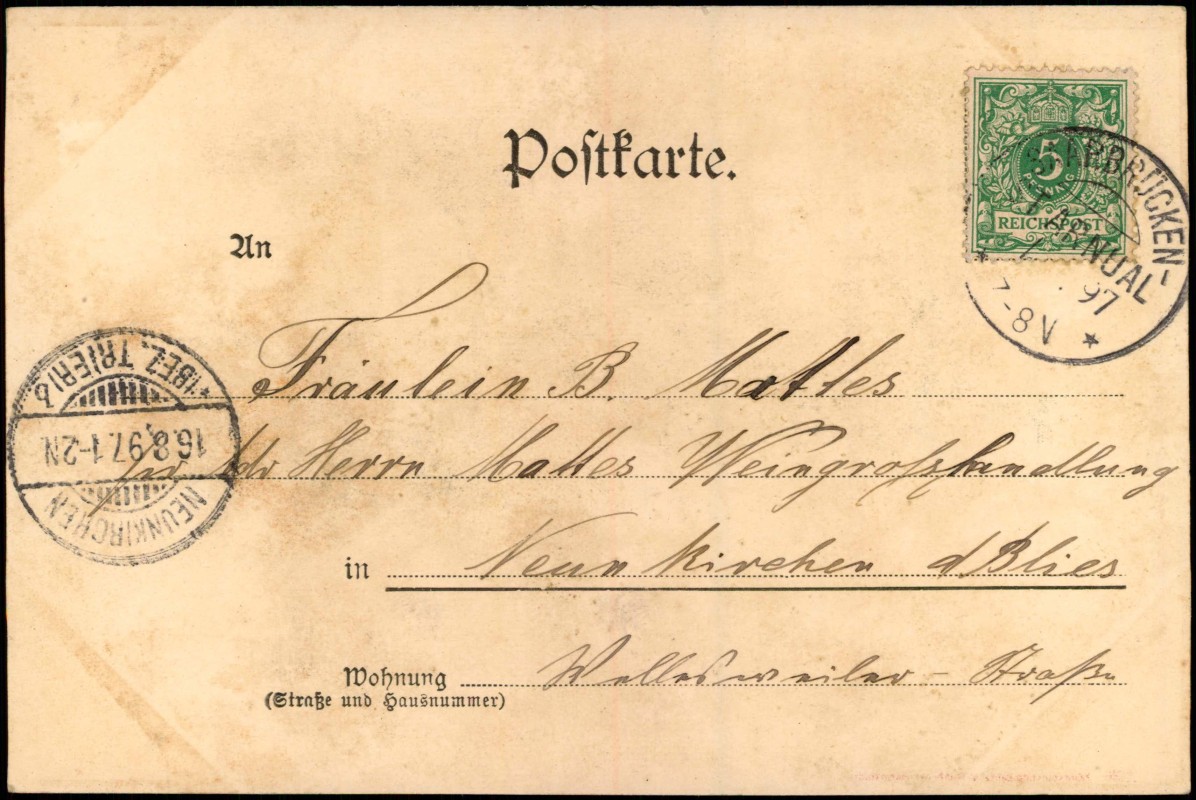 Postkarte.
5
PFENNIG
REICHSPOST
SAARBRÜCKEN-
ST. ARNUAL
97
7-8V
An
Fräulein B. Mattes
Herrn Mattes Weingrosshandlung
in Neunkirchen d Blies
Wohnung Wellesweiler-Straße
(Straße und Hausnummer)
NEUNKIRCHEN
16.8.97.1-2N.
*(BEZ. TRIER) b